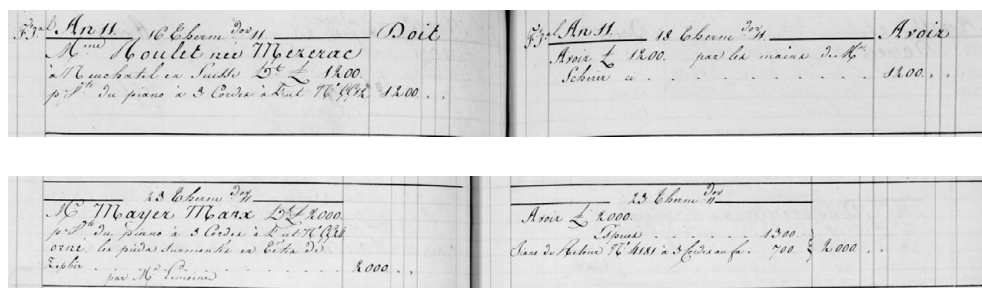 An 11. 16 Therm dor 11 Doit
Mme Houlet née Mezerac
à Neuchatel en Suisse Dt £ 1200.
pr Pte du piano à 3 Cordes à l'ut No 1200. . .
An 11. 18 Therm dor 11 Avoir
Avoir £ 1200. par les mains de Mr
Scherer a . . . . . . . . 1200. . .
23 Therm dor 11
Mr Mayer Marx Dt £ 2000.
pr Pte du piano à 3 Cordes à l'ut No
orné, les pieds surmontés en Têtes de
Zephir . . . . . . . . 2000. . .
par Mr
23 Therm dor 11
Avoir £ 2000.
Espèces . . . . . . 1300.
Piano de Retour No 4181 à 3 Cordes au fa . . 700. 2000. . .